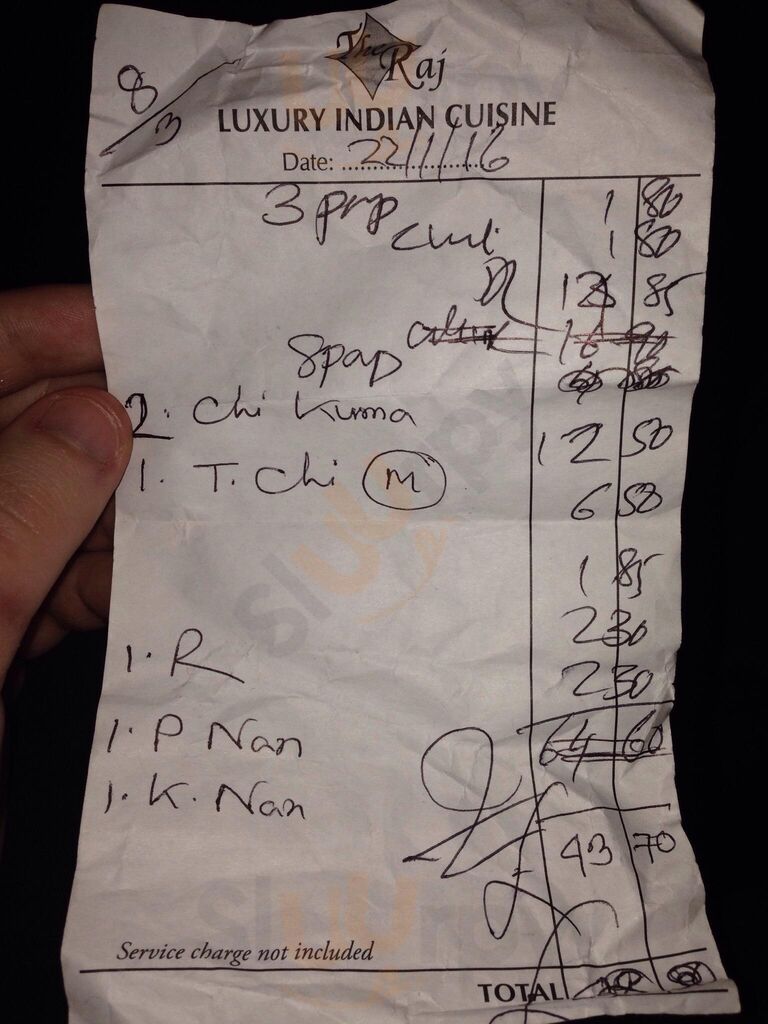 The Raj
8/3
LUXURY INDIAN CUISINE
Date: 22/1/16
3 pap 1 80
1 80
D 85
8 pap
2. Chi Kurma 12 50
1. T. Chi (M) 6 50
1 85
1. R 2 30
1. P Nan 2 30
64 60
1. K. Nan
43 70
Service charge not included
TOTAL